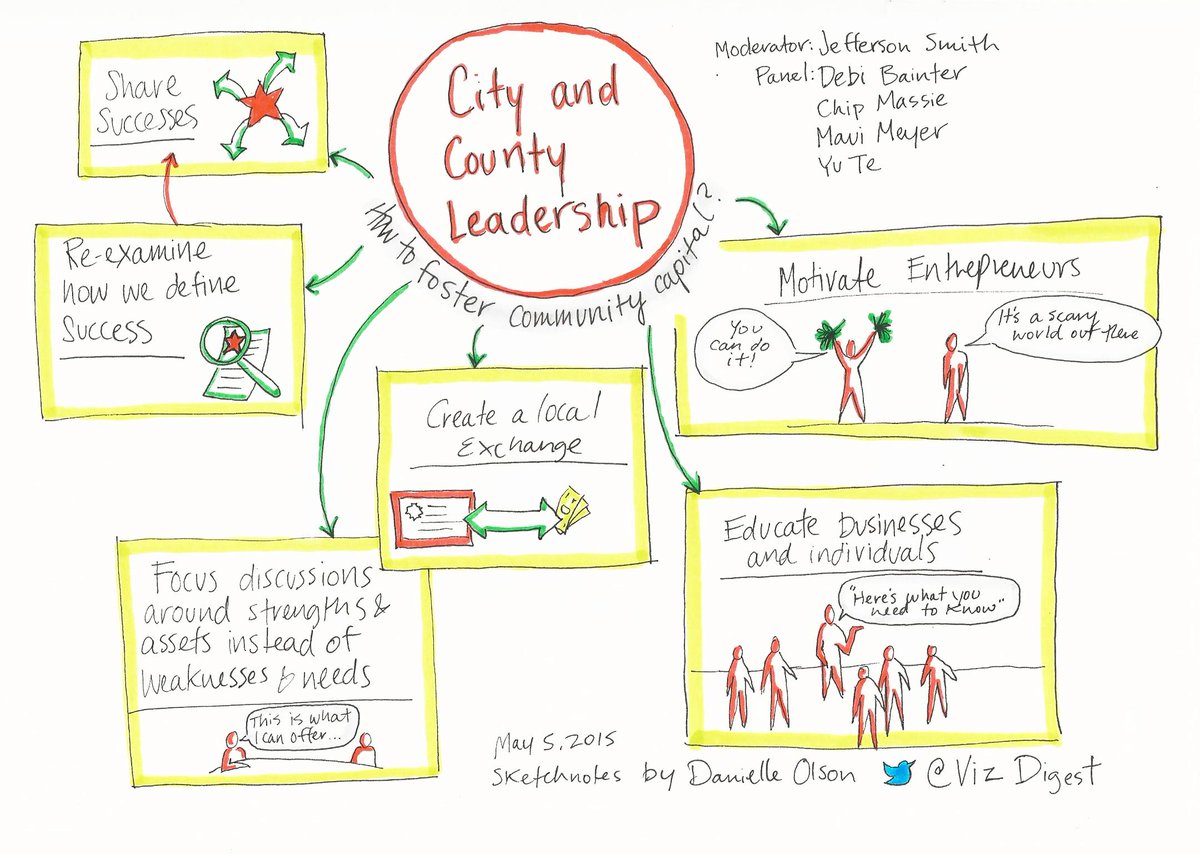 City and
County
Leadership
How to foster community capital?
Moderator: Jefferson Smith
Panel: Debi Bainter
Chip Massie
Maui Meyer
Yu Te
Share
Successes
Re-examine
how we define
Success
Focus discussions
around strengths &
assets instead of
weaknesses & needs
This is what
I can offer...
Create a local
Exchange
Motivate Entrepreneurs
You
can do
it!
It's a scary
world out there
Educate businesses
and individuals
"Here's what you
need to know"
May 5, 2015
Sketchnotes by Danielle Olson @Viz Digest